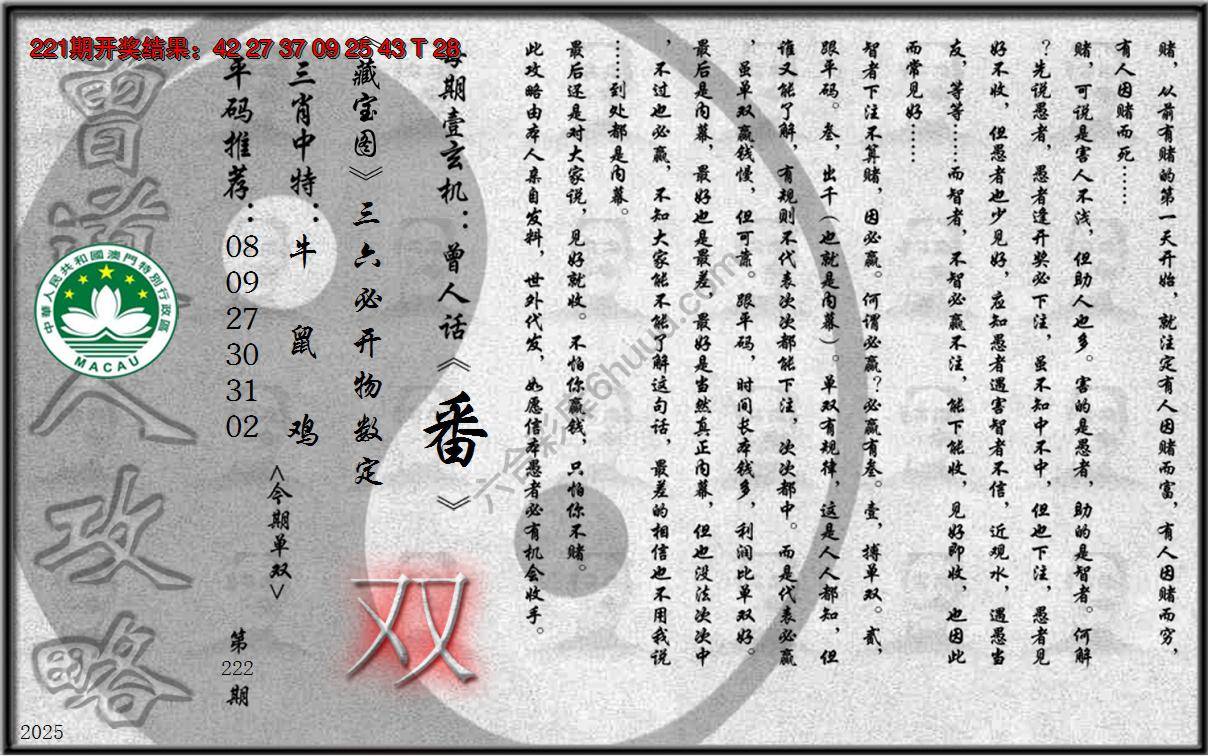 221期开奖结果：42 27 37 09 25 43 T 28
赌，从前有赌的第一天开始，就注定有人因赌而富，有人因赌而穷，
有人因赌而死……
赌，可说是害人不浅，但助人也多。害的是愚者，助的是智者。何解
？先说愚者，愚者逢开奖必下注，虽不知中不中，但也下注，愚者见
好不收，但愚者也少见好，应知愚者遇害智者不信，近观水，遇愚当
友，等等……而智者，不智必赢不注，能下能收，见好即收，也因此
而常见好……
智者下注不算赌，因必赢。何谓必赢？必赢有叁。壹，搏单双。贰，
跟平码。叁，出千（也就是内幕）。单双有规律，这是人人都知，但
谁又能了解，有规则不代表次次都能下注，次次都中。而是代表必赢
，虽单双赢钱慢，但可靠。跟平码，时间长本钱多，利润比单双好。
最后是内幕，最好也是最差，最好是当然真正内幕，但也没法次次中
，不过也必赢，不知大家能不能了解这句话，最差的相信也不用我说
……到处都是内幕。
最后还是对大家说，见好就收。不怕你赢钱，只怕你不赌。
此攻略由本人亲自发料，世外代发，如愿信本愚者必有机会收手。
每期壹玄机：曾人话《番》
《藏宝图》三六必开物数定
三肖中特：牛 鼠 鸡
平码推荐：08 09 27 30 31 02
<今期单双>
双
第222期
曾道人攻略
中華人民共和國澳門特別行政區
MACAU
六合彩库6huuu.com
2025